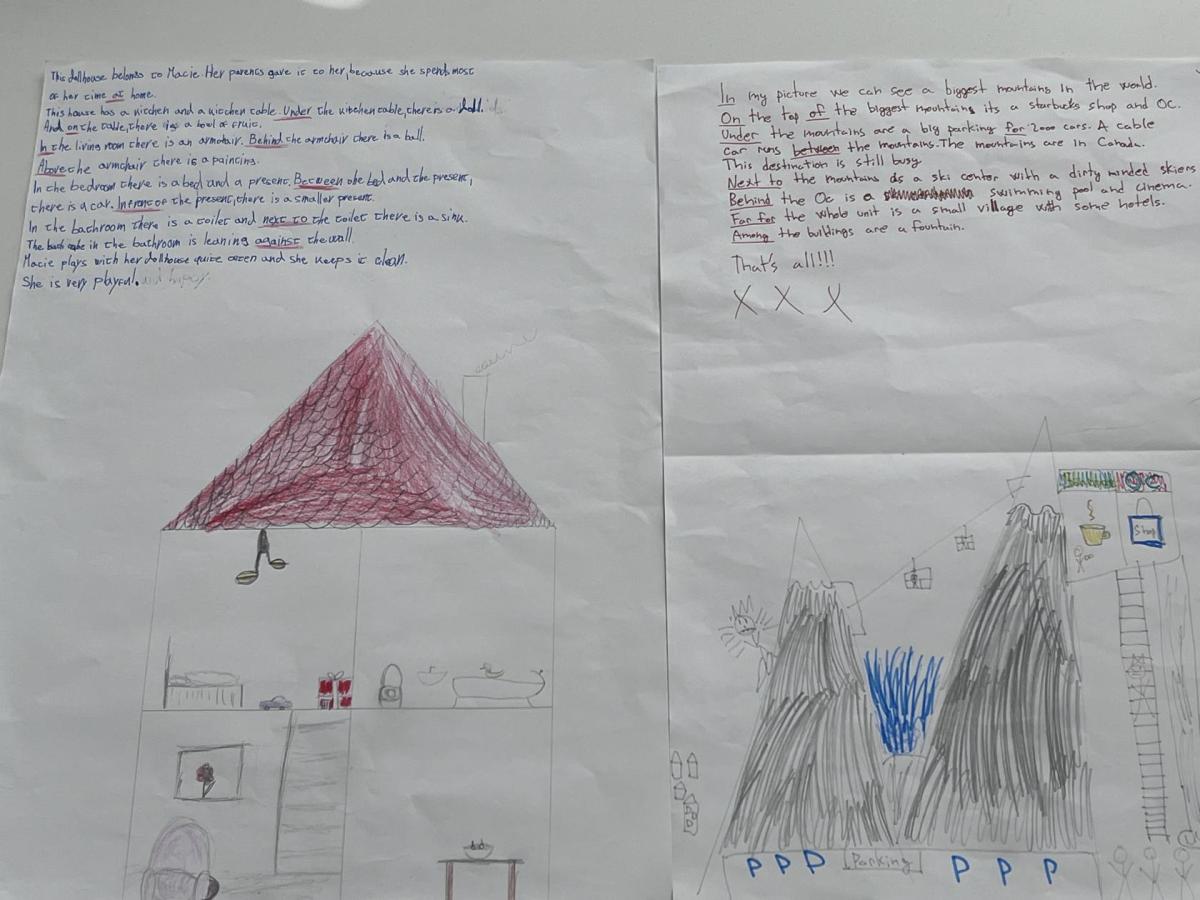 This dollhouse belongs to Macie. Her parents gave it to her, because she spends most
of her time at home.
This house has a kitchen and a kitchen table. Under the kitchen table, there is a
And on the table, there is a bowl of fruit.
In the living room there is an armchair. Behind the armchair there is a ball.
Above the armchair there is a painting.
In the bedroom there is a bed and a present. Between the bed and the present,
there is a car. Infront of the present, there is a smaller present.
In the bathroom there is a toilet and next to the toilet there is a sink.
The in the bathroom is leaning against the wall.
Macie plays with her dollhouse quite often and she keeps it clean.
She is very playful.
In my picture we can see a biggest mountains in the world.
On the top of the biggest mountains its a starbucks shop and OC.
Under the mountains are a big parking for 2000 cars. A cable
car runs between the mountains. The mountains are in Canada.
This destination is still busy.
Next to the mountains is a ski center with a dirty minded skiers
Behind the OC is a swimming pool and cinema.
Far for the whole unit is a small village with some hotels.
Among the buildings are a fountain.
That's all!!!
X X X
Shop
P P P Parking P P P